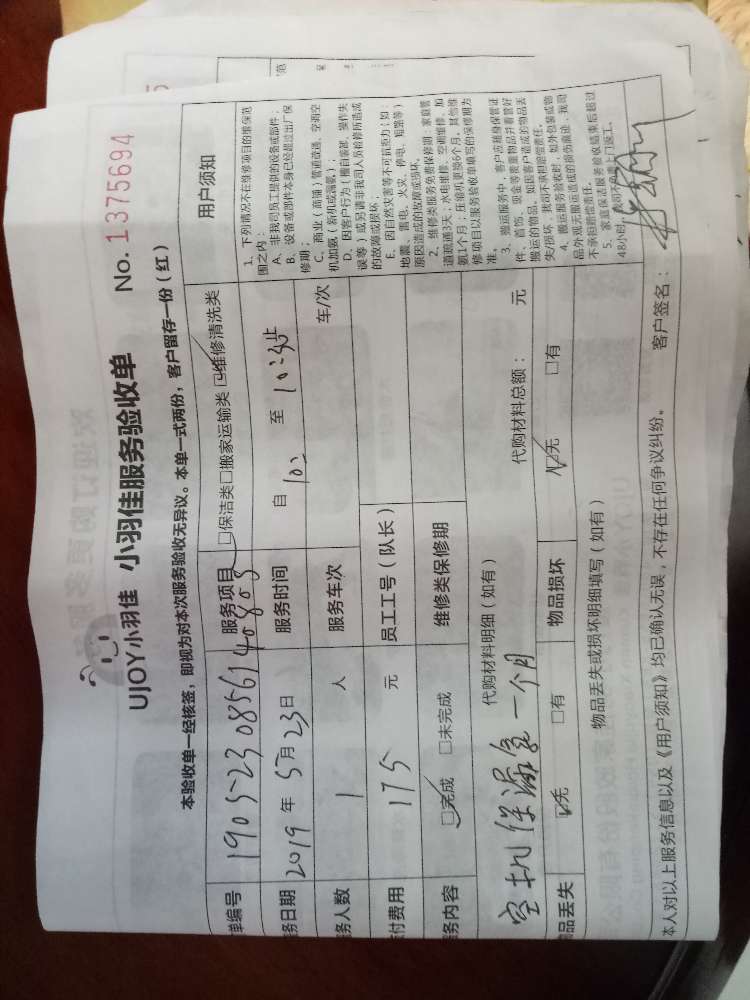 UJOY小羽佳 小羽佳服务验收单 No. 1375694
本验收单一经核签，即视为对本次服务验收无异议。本单一式两份，客户留存一份（红）
单编号 190523085614080803 服务项目 □保洁类□搬家运输类☑维修清洗类
务日期 2019 年 5月23日 服务时间 自 10: 至
务人数 1 人 服务车次 车/次
付费用 175 元 员工工号（队长）
务内容 ☑完成 □未完成 维修类保修期
代购材料明细（如有） 代购材料总额： 元
空扎保漏氟一个月
品丢失 ☑无 □有 物品损坏 ☑无 □有
物品丢失或损坏明细填写（如有）
本人对以上服务信息以及《用户须知》均已确认无误，不存在任何争议纠纷。 客户签名：
用户须知
1、下列情况不在维修项目的维保范
围之内：
A、非我司员工提供的设备或部件；
B、设备或部件本身已经超过出厂保
修期；
C、商业（商铺）管道改造、空调空
机加氨（新机或漏氨）；
D、因客户行为（擅自装卸、操作失
误等）或另请非我司人员检修所造成
的故障或损坏；
E、因自然灾害等不可抗力（如：
地震、雷电、火灾、停电、短路等）
原因造成的故障或损坏。
2、维修类服务免费保修期：家庭管
道疏通3天，水电维修、空调维修、加
氨1个月；压缩机更换6个月。其他维
修项目以服务验收单填写的保修期为
准。
3、搬运服务中，客户应随身保管证
件、首饰、现金等贵重物品并看管好
搬运的物品。如因客户造成的物品丢
失/损坏，我司不承担赔偿责任。
4、搬运服务验收时，如外包装或物
品外观无搬运造成的损伤痕迹，我司
不承担赔偿责任。
5、家庭保洁服务验收结束后超过
48小时，我司不负责上门返工。